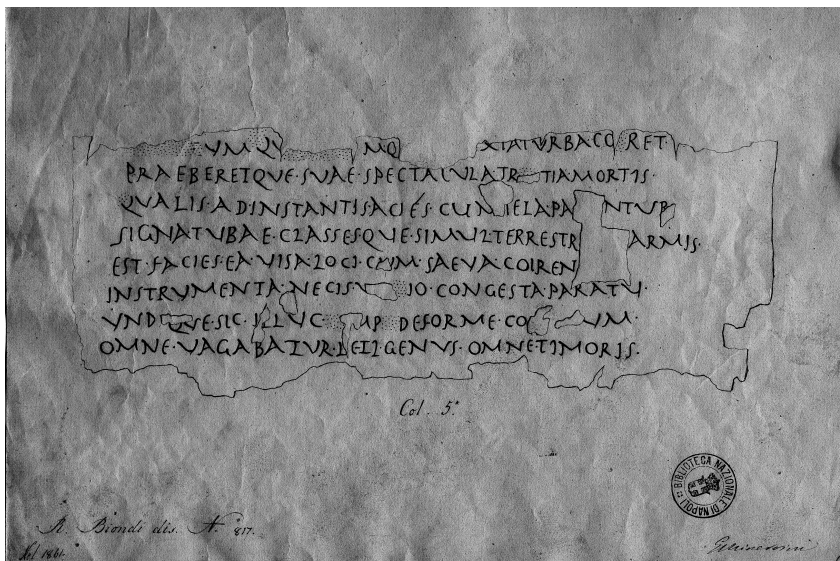 VMQV MQ XTATVRBACO RET
PRAEBERETQVE·SVAE·SPECTACVLATR TIAMORTIS·
QVALIS·ADINSTANTIS·ACIES·CVM TELA·PA NTVR
SIGNATVBAE·CLASSESQVE·SIMVL·TERRESTR ARMIS·
EST·FACIES·EA·VISA·LOCI·CVM·SAEVA·COIREN
INSTRVMENTA·NECIS·V IO·CONGESTA·PARATV·
VND QVE·SIC·ILLVC MP DEFORME·CO VM·
OMNE·VAGABATVR·LETI·GENVS·OMNETIMORIS·
Col. 5.ª
BIBLIOTECA NAZIONALE DI NAPOLI
R. Biondi dis. N.° 817.